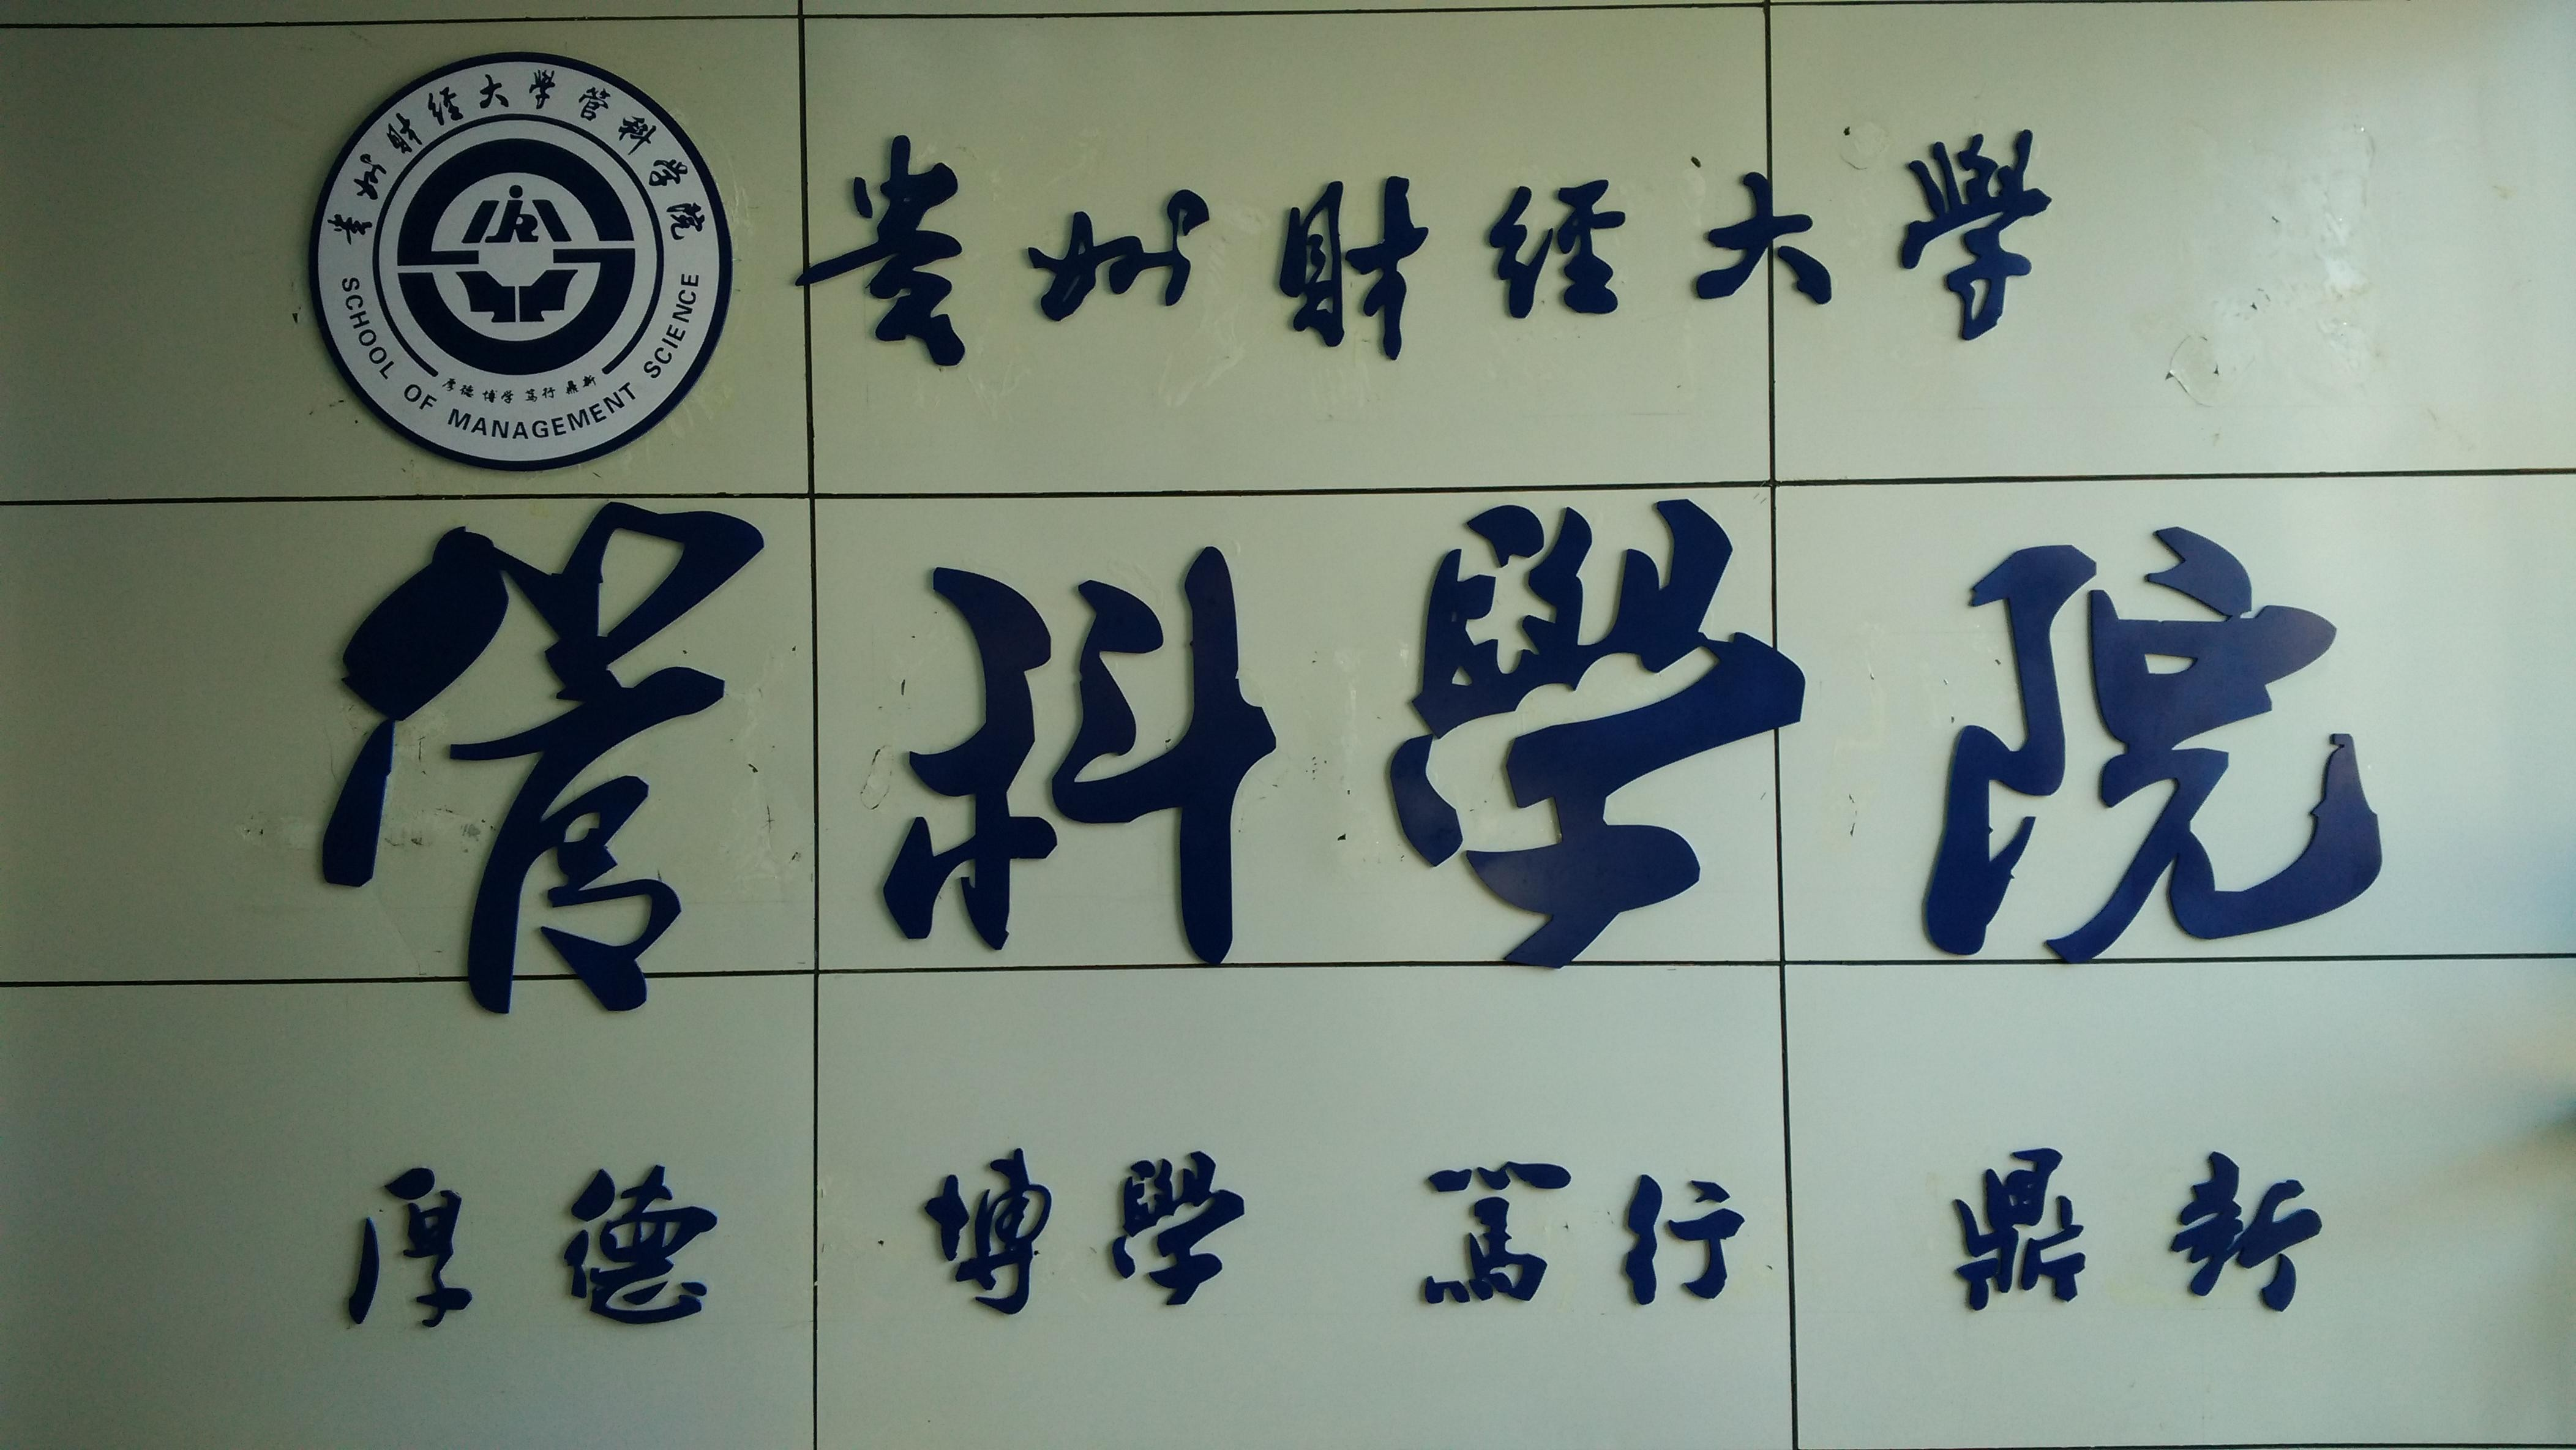 贵州财经大学管科学院
厚德 博学 篤行 鼎新
SCHOOL OF MANAGEMENT SCIENCE
贵州财經大學
管科學院
厚德 博學 篤行 鼎新